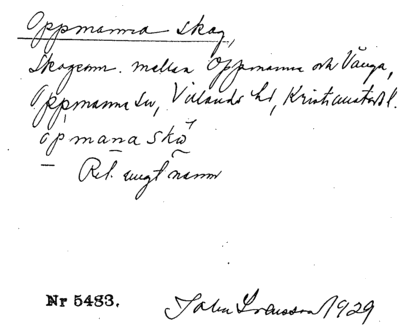 Oppmanna skog,
Skogsom. mellan Oppmanna och Vånga,
Oppmanna sn, Villands hd, Kristianstads l.
opmana skω
Rel. ungt namn
Nr 5483. John Svensson 1929